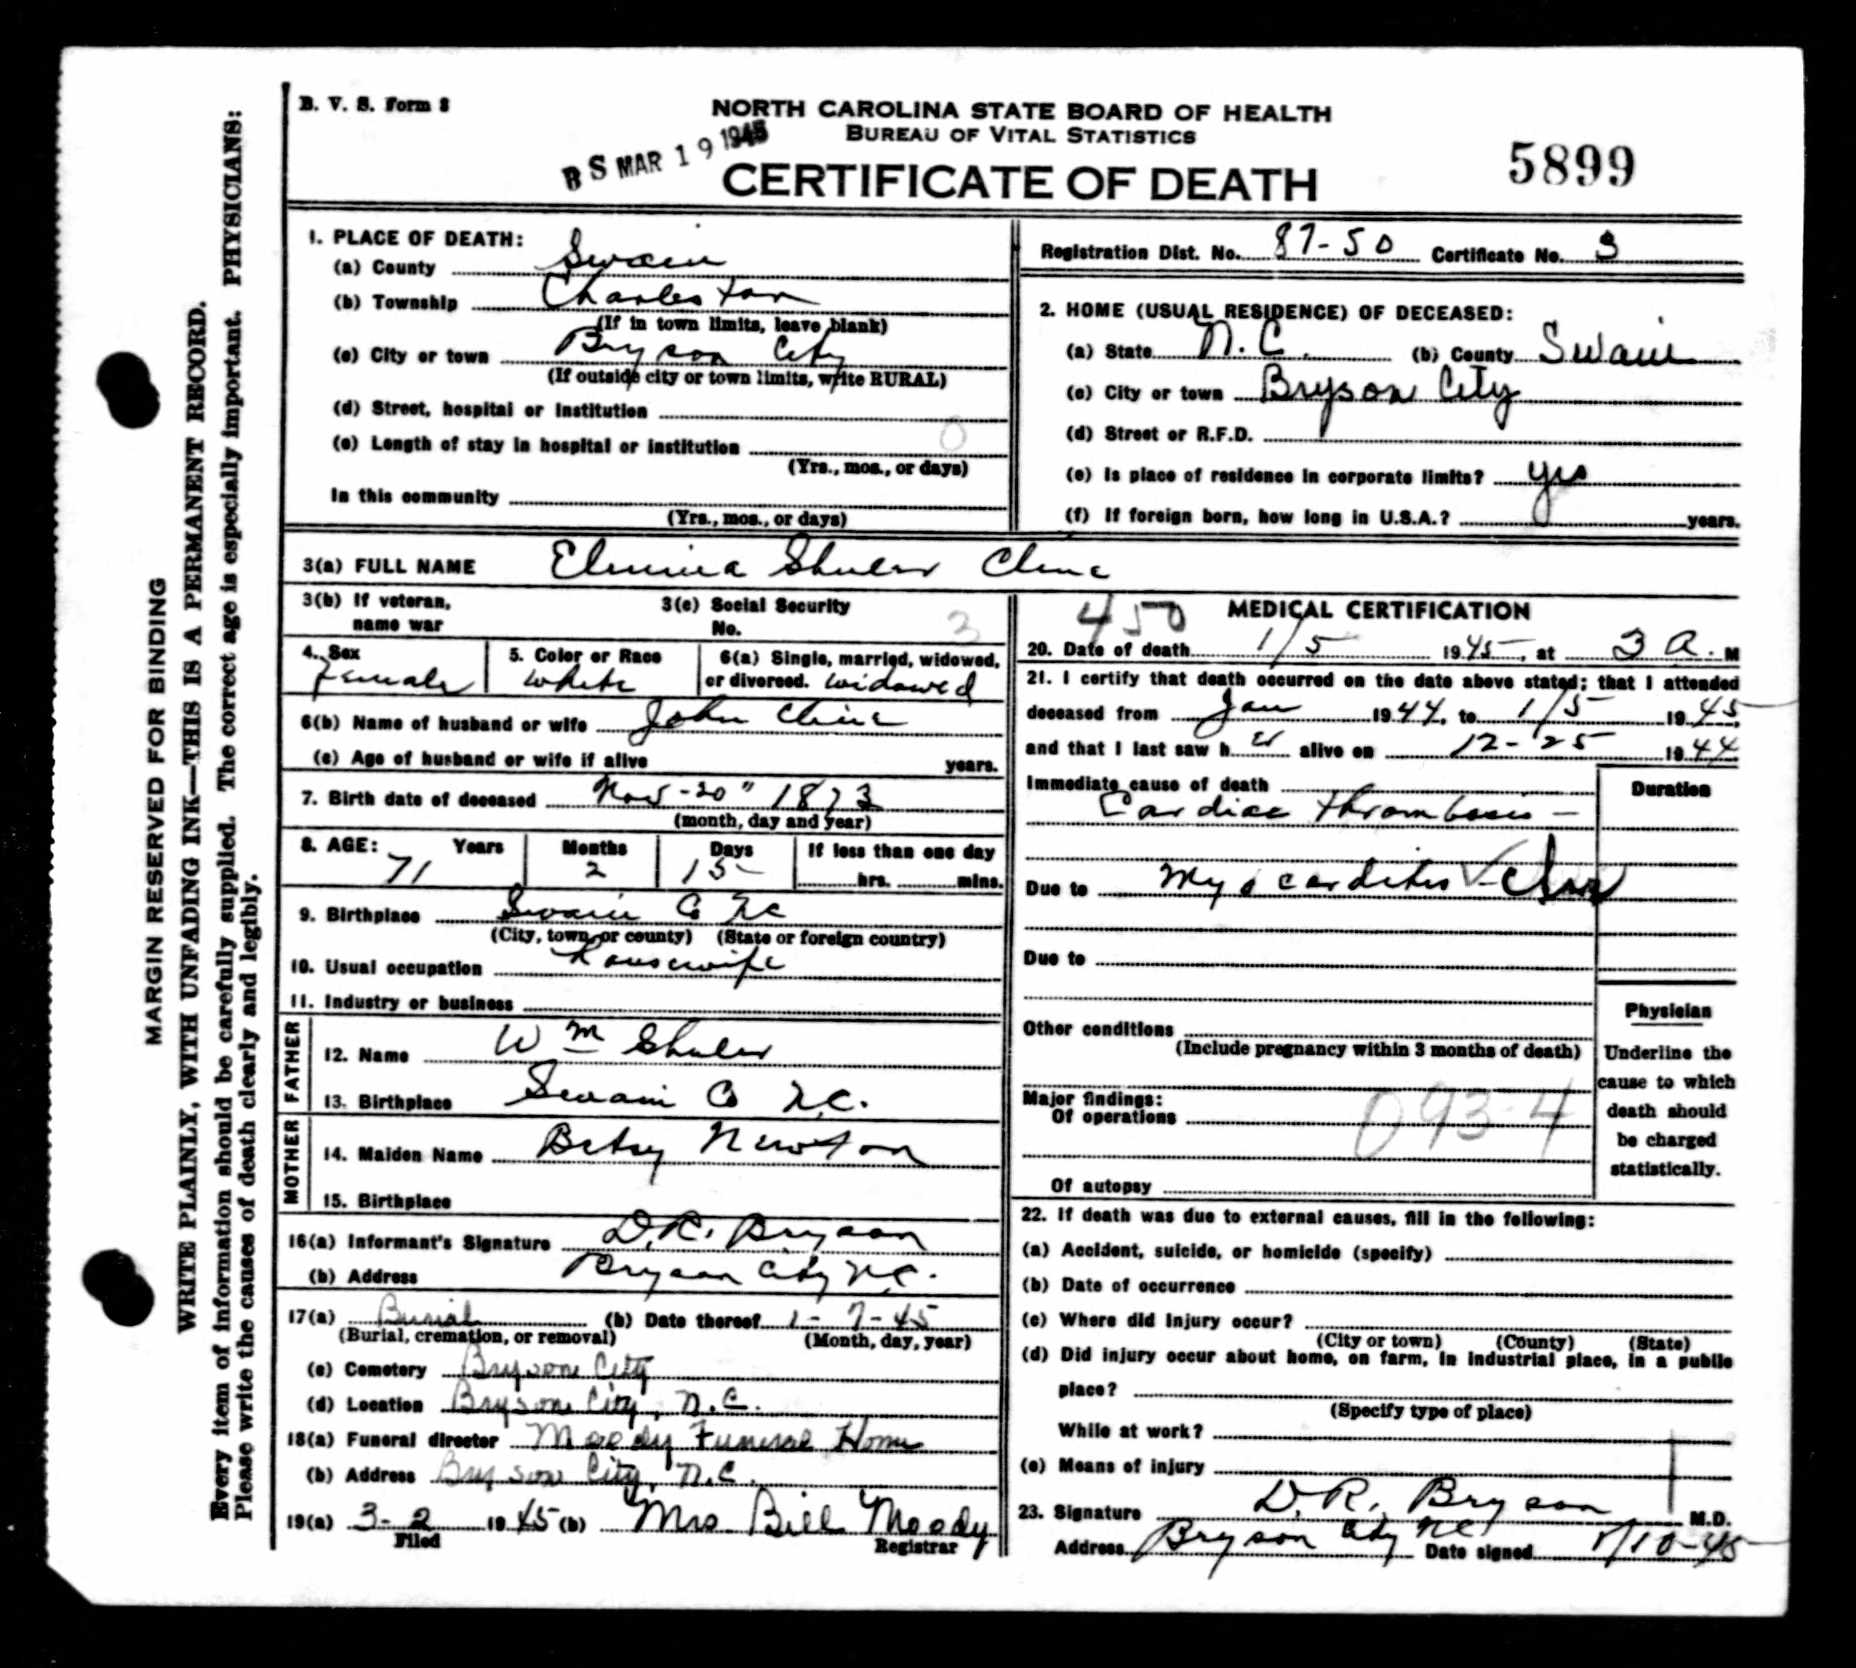 B. V. S. Form 8
NORTH CAROLINA STATE BOARD OF HEALTH
BUREAU OF VITAL STATISTICS
CERTIFICATE OF DEATH
S MAR 19 1945
5899
MARGIN RESERVED FOR BINDING
WRITE PLAINLY, WITH UNFADING INK—THIS IS A PERMANENT RECORD.
Every item of information should be carefully supplied. The correct age is especially important. PHYSICIANS:
Please write the causes of death clearly and legibly.
1. PLACE OF DEATH:
(a) County Swain
(b) Township Charleston
(If in town limits, leave blank)
(c) City or town Bryson City
(If outside city or town limits, write RURAL)
(d) Street, hospital or institution
(e) Length of stay in hospital or institution 0
(Yrs., mos., or days)
In this community
(Yrs., mos., or days)
Registration Dist. No. 87-50 Certificate No. 3
2. HOME (USUAL RESIDENCE) OF DECEASED:
(a) State N.C. (b) County Swain
(c) City or town Bryson City
(d) Street or R.F.D.
(e) Is place of residence in corporate limits? yes
(f) If foreign born, how long in U.S.A.? years.
3(a) FULL NAME Elmina Shuler Cline
3(b) If veteran, name war
3(c) Social Security No. 3
4. Sex Female
5. Color or Race White
6(a) Single, married, widowed, or divorced. Widowed
6(b) Name of husband or wife John Cline
(c) Age of husband or wife if alive years.
7. Birth date of deceased Nov-20" 1873
(month, day and year)
8. AGE: Years 71 Months 2 Days 15 If less than one day hrs. mins.
9. Birthplace Swain Co NC
(City, town, or county) (State or foreign country)
10. Usual occupation Housewife
11. Industry or business
FATHER
12. Name Wm Shuler
13. Birthplace Swain Co N.C.
MOTHER
14. Maiden Name Betsy Newton
15. Birthplace
16(a) Informant's Signature D.R. Bryson
(b) Address Bryson City N.C.
17(a) Burial (b) Date thereof 1-7-45
(Burial, cremation, or removal) (Month, day, year)
(c) Cemetery Bryson City
(d) Location Bryson City, N.C.
18(a) Funeral director Moody Funeral Home
(b) Address Bryson City, N.C.
19(a) 3-2 1945 (b) Mrs Bill Moody
Filed Registrar
450 MEDICAL CERTIFICATION
20. Date of death 1/5 1945, at 3 A. M
21. I certify that death occurred on the date above stated; that I attended
deceased from Jan 1944, to 1/5 1945,
and that I last saw her alive on 12-25 1944.
Immediate cause of death
Cardiac thrombosis -
Duration
Due to Myocarditis ✓ -
Due to
Other conditions
(Include pregnancy within 3 months of death)
Major findings:
Of operations
093-4
Of autopsy
Physician
Underline the
cause to which
death should
be charged
statistically.
22. If death was due to external causes, fill in the following:
(a) Accident, suicide, or homicide (specify)
(b) Date of occurrence
(c) Where did injury occur?
(City or town) (County) (State)
(d) Did injury occur about home, on farm, in industrial place, in a public
place?
(Specify type of place)
While at work?
(e) Means of injury
23. Signature D.R. Bryson M.D.
Address Bryson City NC Date signed 1/10-45